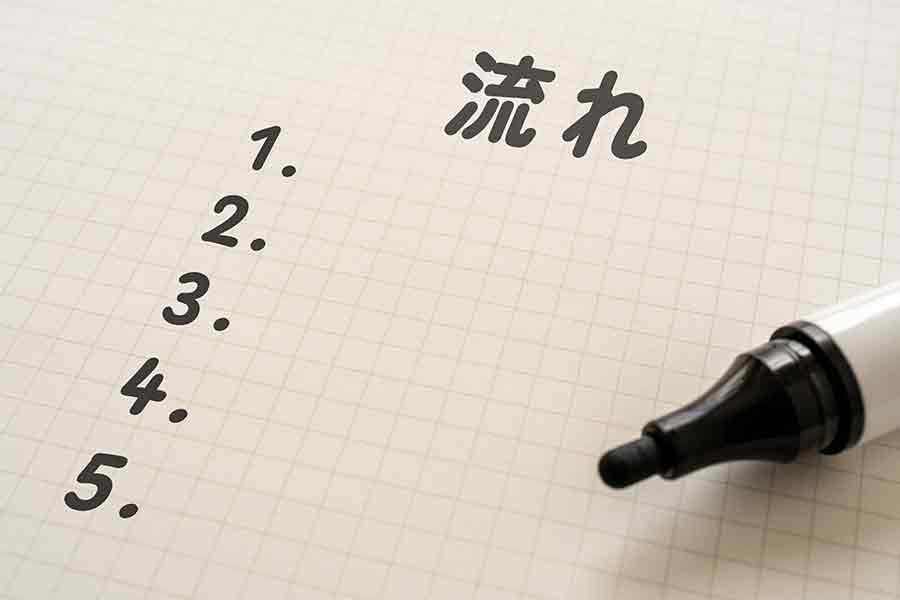 流れ
1.
2.
3.
4.
5.